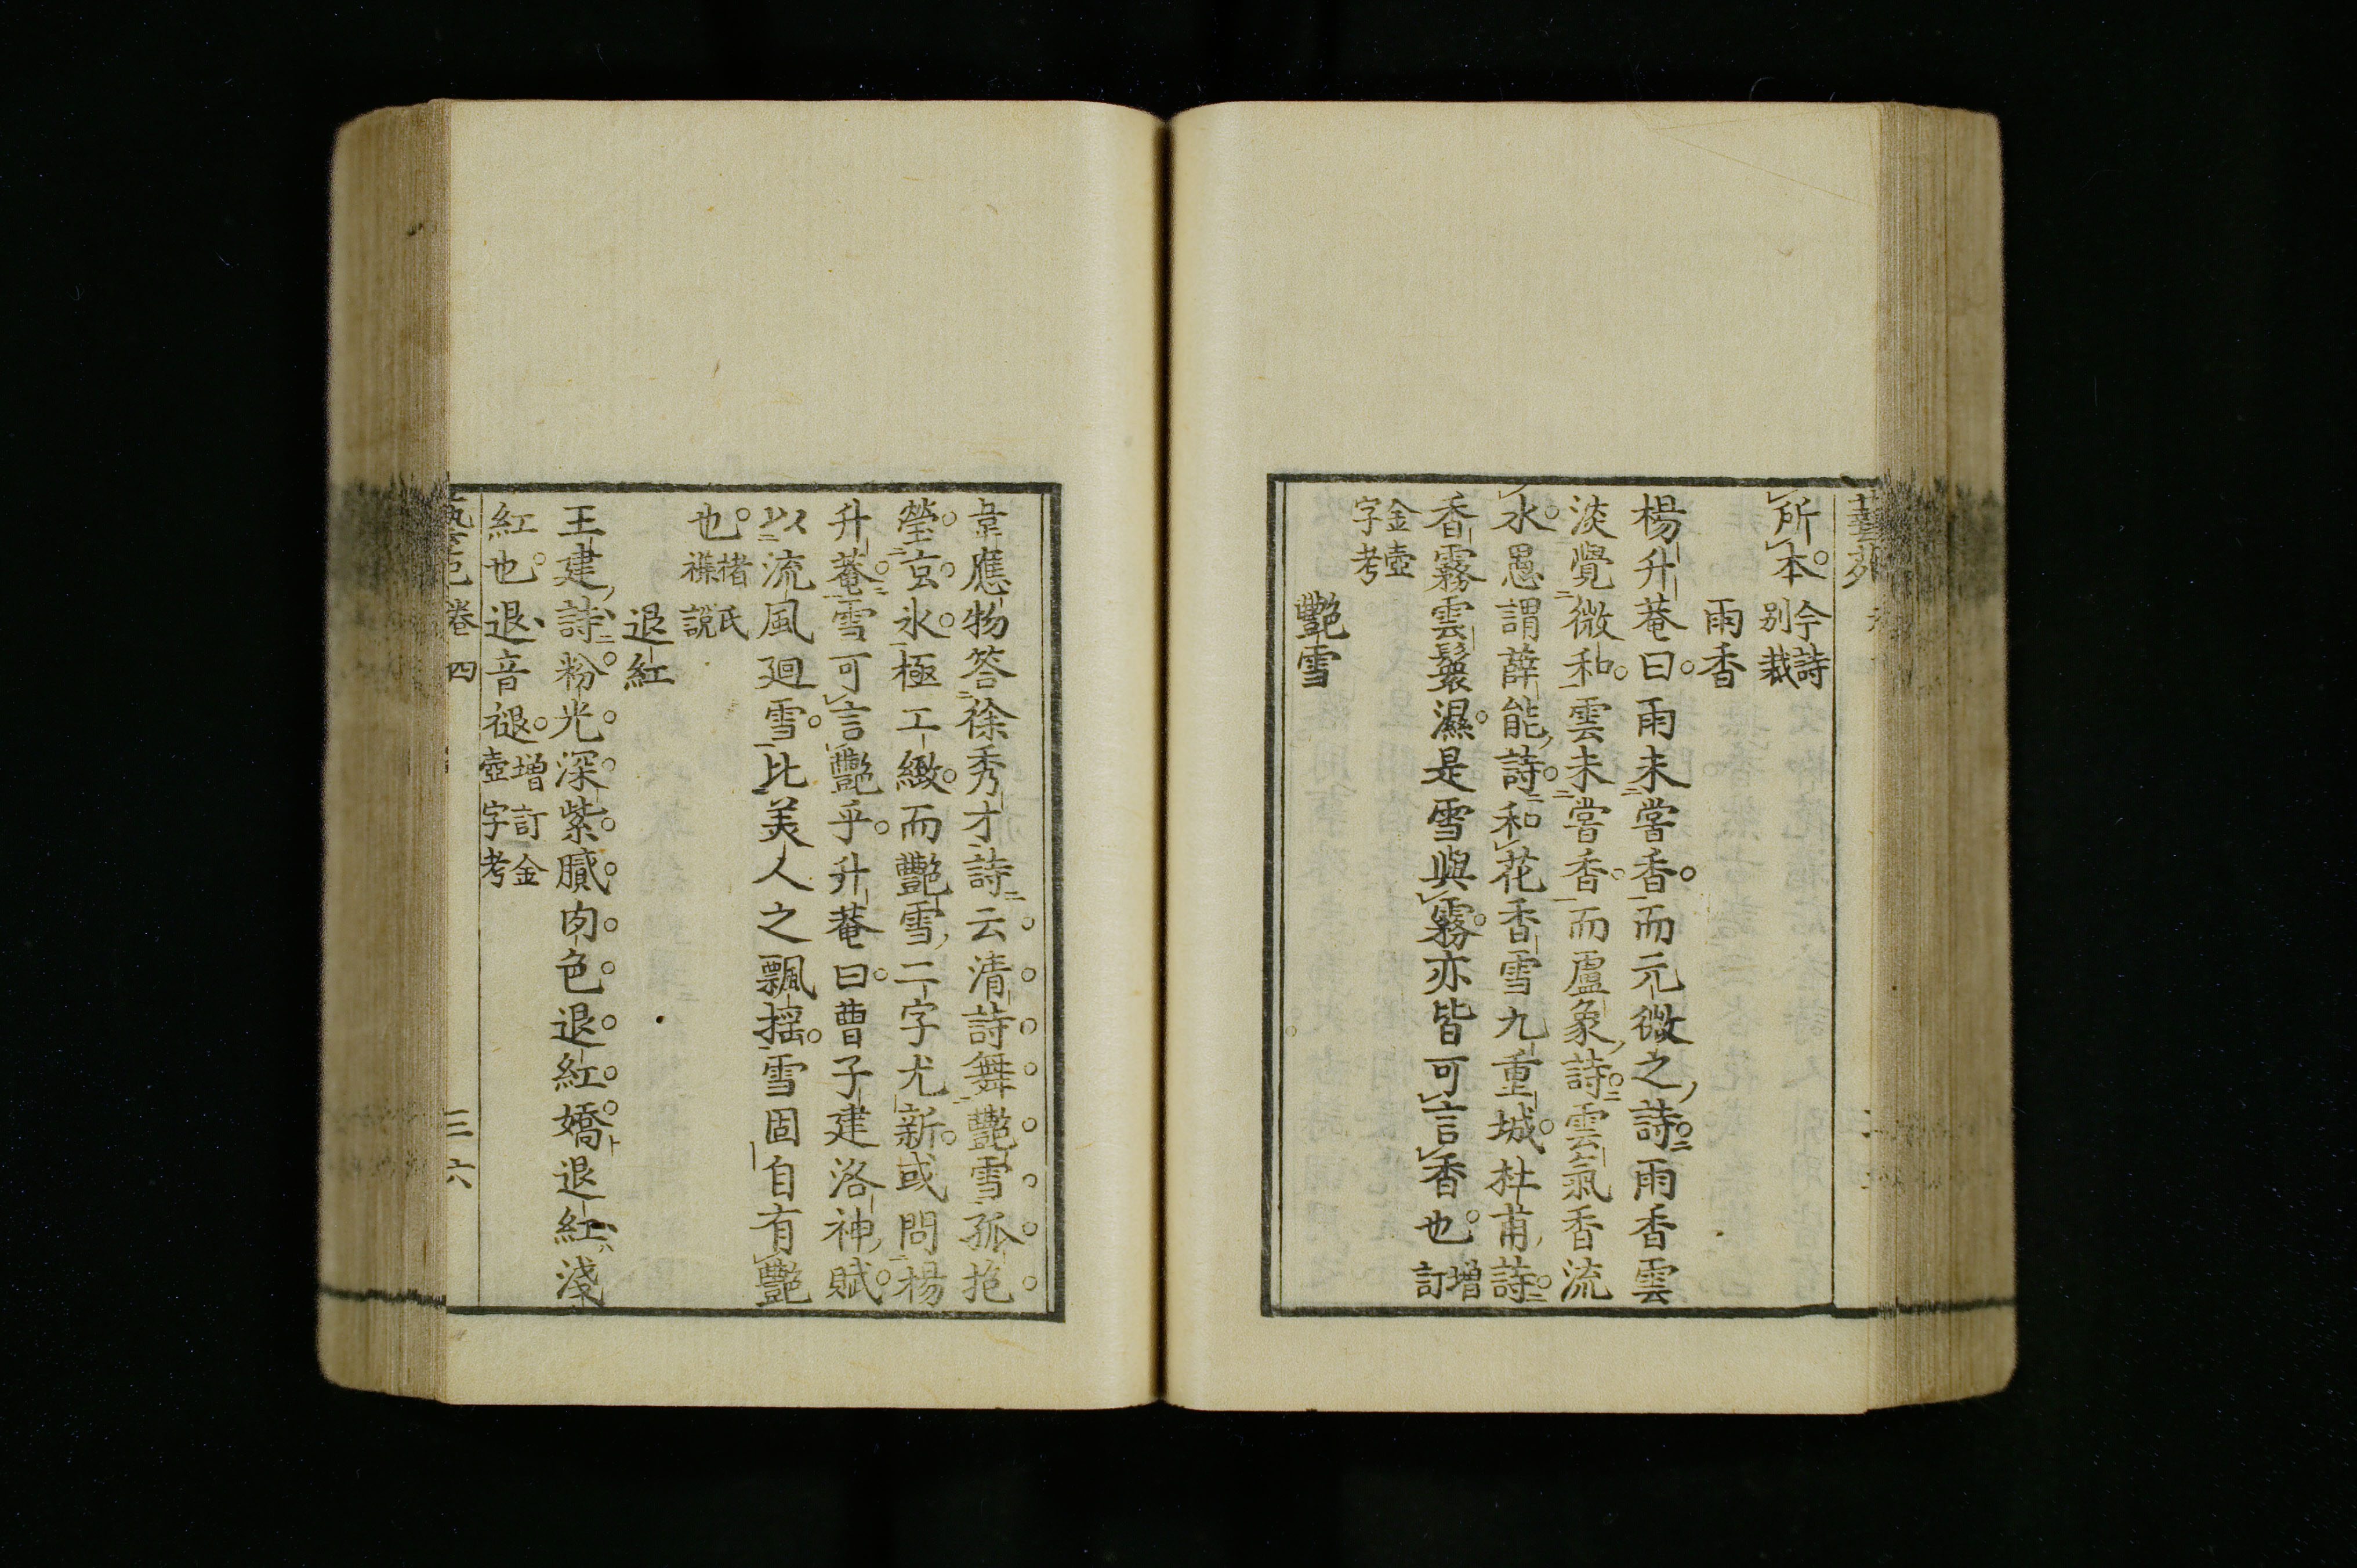 所本今詩別裁
雨香
楊升菴曰雨未嘗香而元微之詩雨香雲
淡覺微和雲未嘗香而盧象詩雲氣香流
水愚謂薛能詩和花香雪九重城杜甫詩
香霧雲鬟濕是雪與霧亦皆可言香也增訂
金壺字考
艷雪
韋應物答徐秀才詩云清詩舞艷雪孤抱
瑩玄氷極工緻而艷雪二字尤新或問楊
升菴雪可言艷乎升菴曰曹子建洛神賦
以流風廻雪比美人之飄揺雪固自有艷
也楮氏襍說
退紅
王建詩粉光深紫膩肉色退紅嬌退紅淺
紅也退音褪增訂金壺字考
卷四
三六